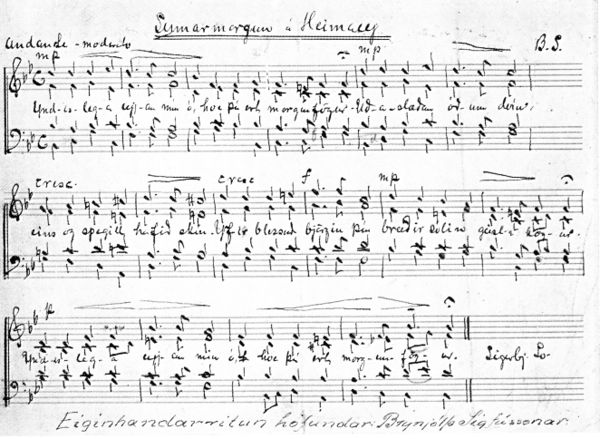 Sumarmorgun á Heimaey
Andante-moderato
mp mp B.S.
Ynd-is-leg-a eyj-an mín ó, hve þú ert morgunfögur. Úð-a-slæðan ör-um dvín,
cresc. cresc f mp
eins og spegill hafið skín. Yfir blessuð björgin þín breiðir sólin geisl-a kög-ur.
p
Ynd-is-leg-a eyj-an mín ó, hve þú ert morg-un-fög-ur. Sigurbj. Sv-
Eiginhandarritun höfundar: Brynjólfs Sigfússonar.